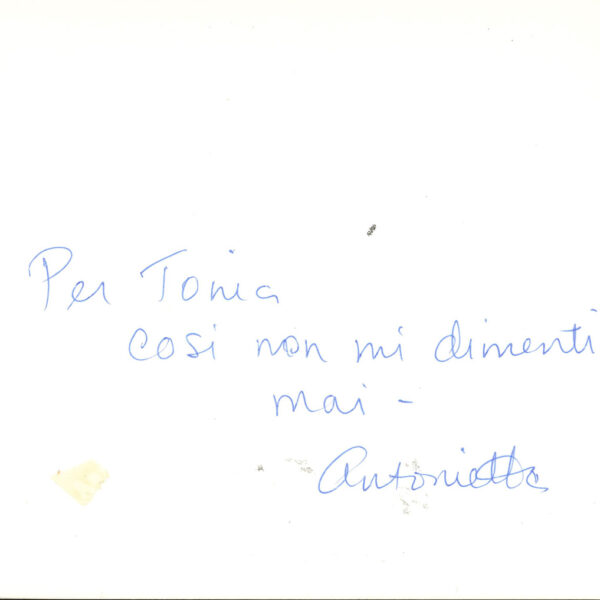 Per Tonia
cosi non mi dimenti
mai -
Antonietta